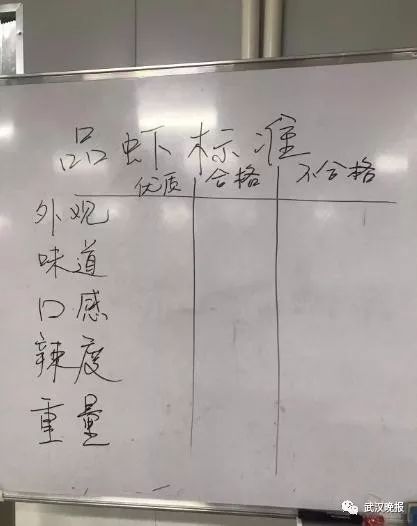 品虾标准
优质 合格 不合格
外观
味道
口感
辣度
重量
武汉晚报